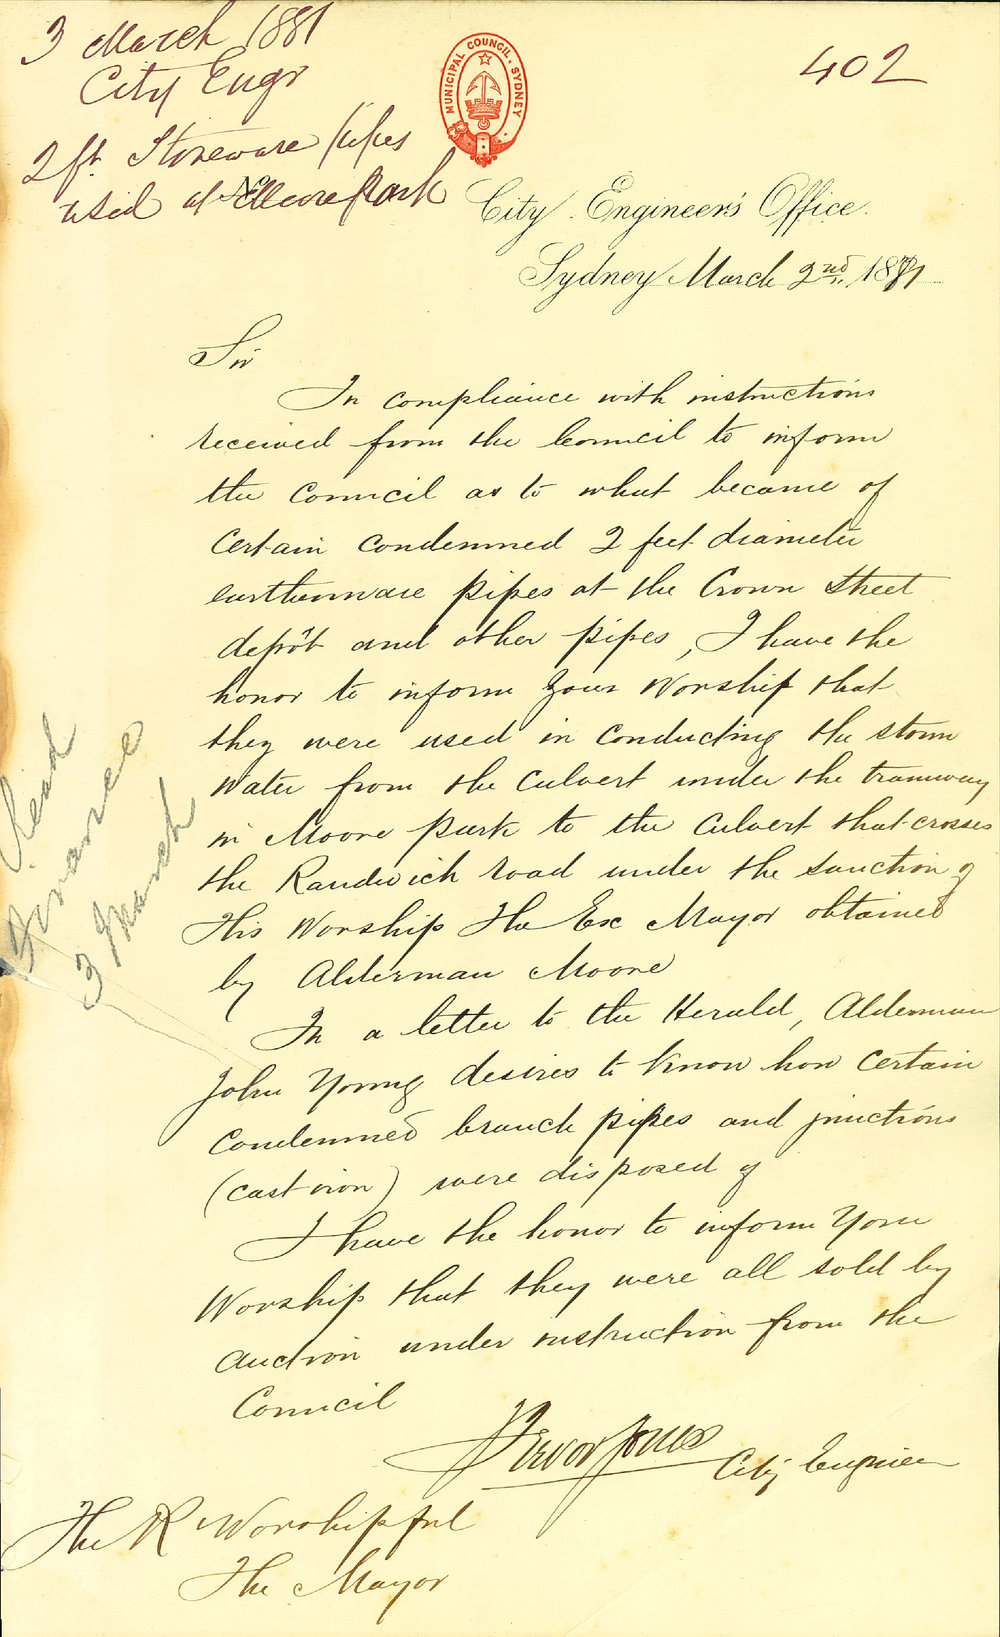 3 March 1881
City Engr
2 ft. Stoneware pipes
used at Moore Park
402
MUNICIPAL COUNCIL. SYDNEY
No.
City Engineer's Office.
Sydney March 2nd. 1881
Sir
In compliance with instructions
received from the Council to inform
the Council as to what became of
certain condemned 2 feet diameter
earthenware pipes at the Crown Street
depôt and other pipes, I have the
honor to inform Your Worship that
they were used in conducting the storm
water from the culvert under the tramway
in Moore Park to the culvert that crosses
the Randwich road under the sanction of
His Worship The Ex Mayor obtained
by Alderman Moore
In a letter to the Herald, Alderman
John Young desires to know how certain
condemned branch pipes and junctions
(cast iron) were disposed of
I have the honor to inform Your
Worship that they were all sold by
auction under instruction from the
Council
Trevor Jones City Engineer
The R. Worshipful
The Mayor
Read
Finance
3 March